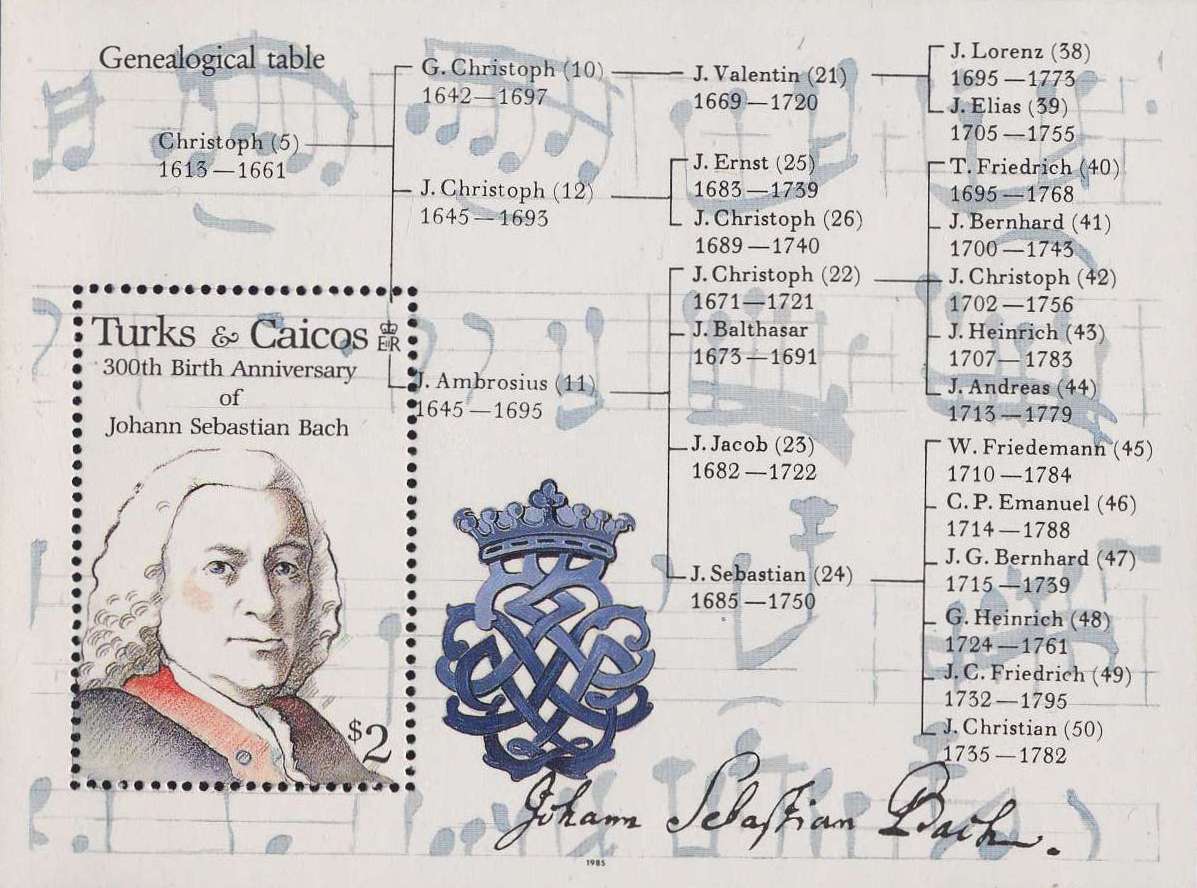 Genealogical table
Christoph (5)
1613—1661
G. Christoph (10)
1642—1697
J. Christoph (12)
1645—1693
J. Ambrosius (11)
1645—1695
J. Valentin (21)
1669—1720
J. Ernst (25)
1683—1739
J. Christoph (26)
1689—1740
J. Christoph (22)
1671—1721
J. Balthasar
1673—1691
J. Jacob (23)
1682—1722
J. Sebastian (24)
1685—1750
J. Lorenz (38)
1695—1773
J. Elias (39)
1705—1755
T. Friedrich (40)
1695—1768
J. Bernhard (41)
1700—1743
J. Christoph (42)
1702—1756
J. Heinrich (43)
1707—1783
J. Andreas (44)
1713—1779
W. Friedemann (45)
1710—1784
C. P. Emanuel (46)
1714—1788
J. G. Bernhard (47)
1715—1739
G. Heinrich (48)
1724—1761
J. C. Friedrich (49)
1732—1795
J. Christian (50)
1735—1782
Turks & Caicos EIIR
300th Birth Anniversary
of
Johann Sebastian Bach
$2
Johann Sebastian Bach.
1985